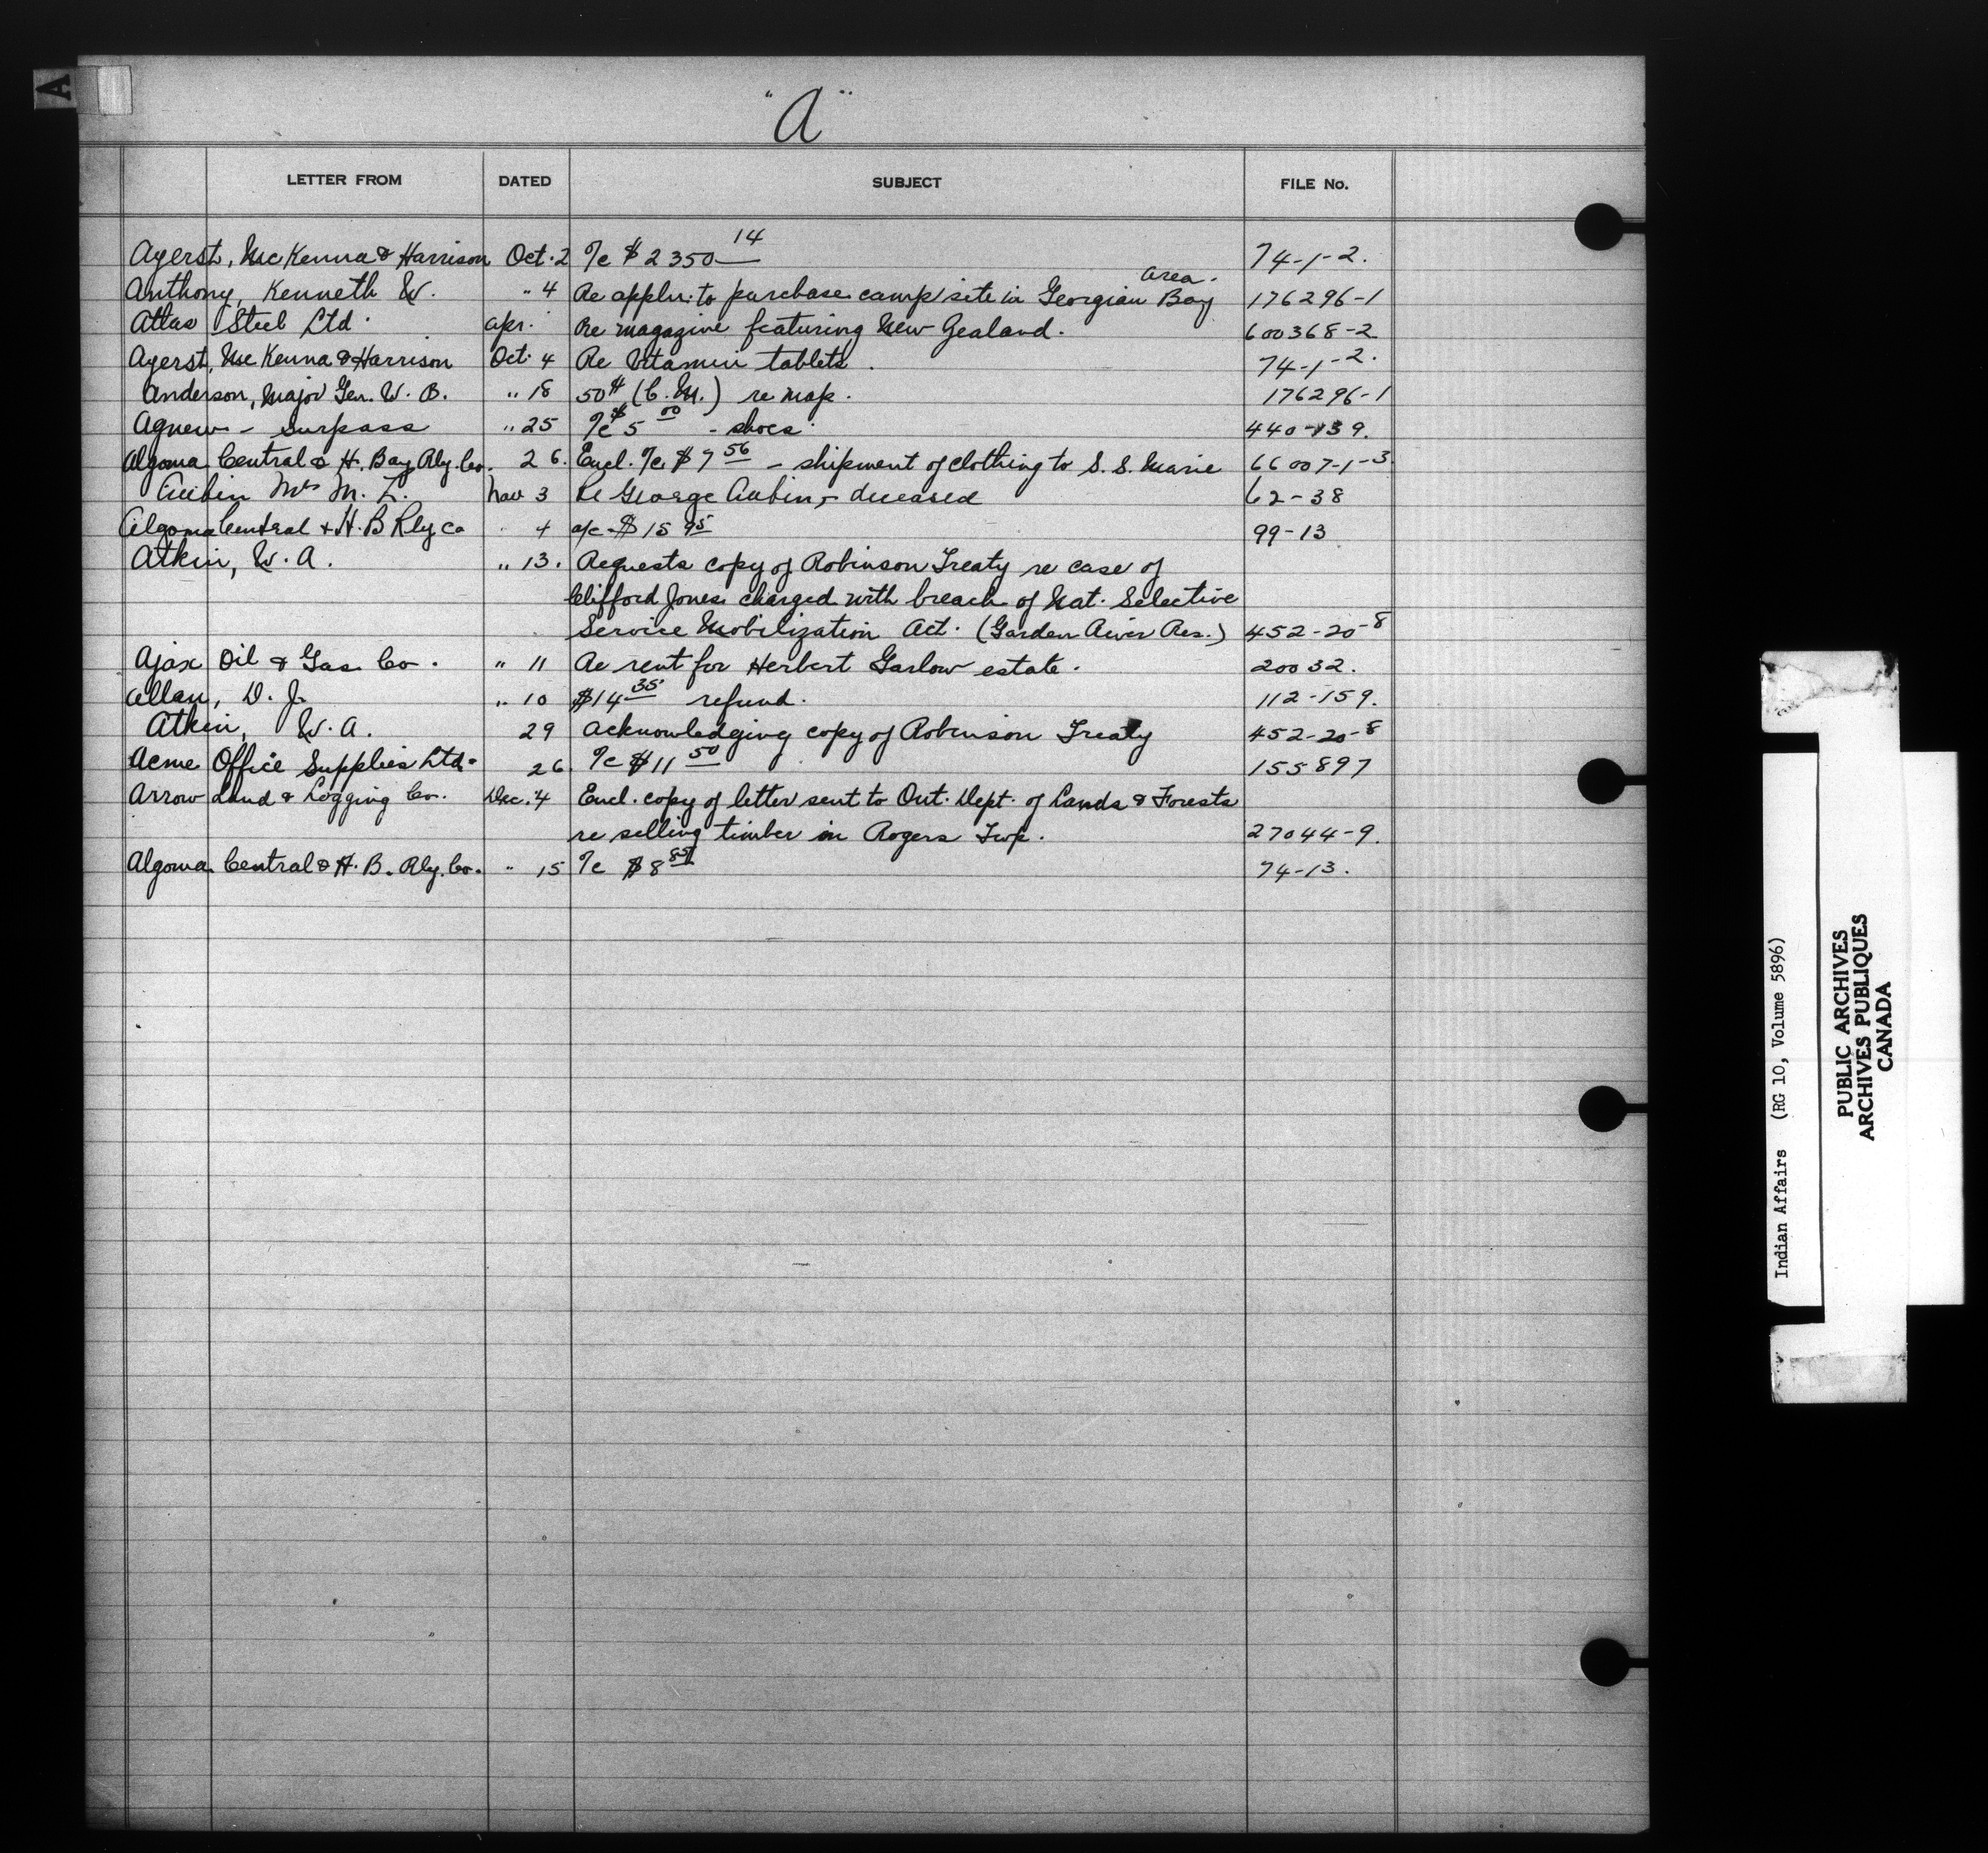 A
"A"
LETTER FROM DATED SUBJECT FILE No.
Ayerst, McKenna & Harrison Oct. 2 a/c $2350 14 74-1-2.
Anthony, Kenneth W. " 4 Re appln. to purchase camp site in Georgian Bay area. 176296-1
Atlas Steel Ltd. Apr. Re magazine featuring New Zealand. 600368-2
Ayerst, McKenna & Harrison Oct. 4 Re Vitamin tablets. 74-1-2.
Anderson, Major Gen. W. B. " 18 50¢ (C. M.) re map. 176296-1
Agnew - Surpass " 25 a/c $5 00 - shoes. 440-139.
Algoma Central & H. Bay Rly. Co. 26. Encl. a/c $7 56 - shipment of clothing to S. S. Marie 66007-1-3.
Aubin Mrs M. L. Nov 3 Re George Aubin, - deceased 62-38
Algoma Central & H. B Rly Co " 4 a/c $15 95 99-13
Atkin, W. A. " 13. Requests copy of Robinson Treaty re case of
Clifford Jones charged with breach of Nat. Selective
Service Mobilization Act. (Garden River Res.) 452-20-8
Ajax Oil & Gas Co. " 11 Re rent for Herbert Garlow estate. 20032.
Allan, D. J. " 10 $14 35 refund. 112-159.
Atkin, W. A. 29 Acknowledging copy of Robinson Treaty 452-20-8
Acme Office Supplies Ltd. 26. a/c $11 50 155897
Arrow Land & Logging Co. Dec. 4 Encl. copy of letter sent to Ont. Dept. of Lands & Forests
re selling timber in Rogers Twp. 27044-9.
Algoma Central & H. B. Rly. Co. " 15 a/c $8 85 74-13.
Indian Affairs (RG 10, Volume 5896)
PUBLIC ARCHIVES
ARCHIVES PUBLIQUES
CANADA